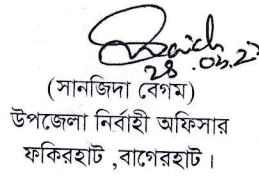 28.03.23
(সানজিদা বেগম)
উপজেলা নির্বাহী অফিসার
ফকিরহাট ,বাগেরহাট।